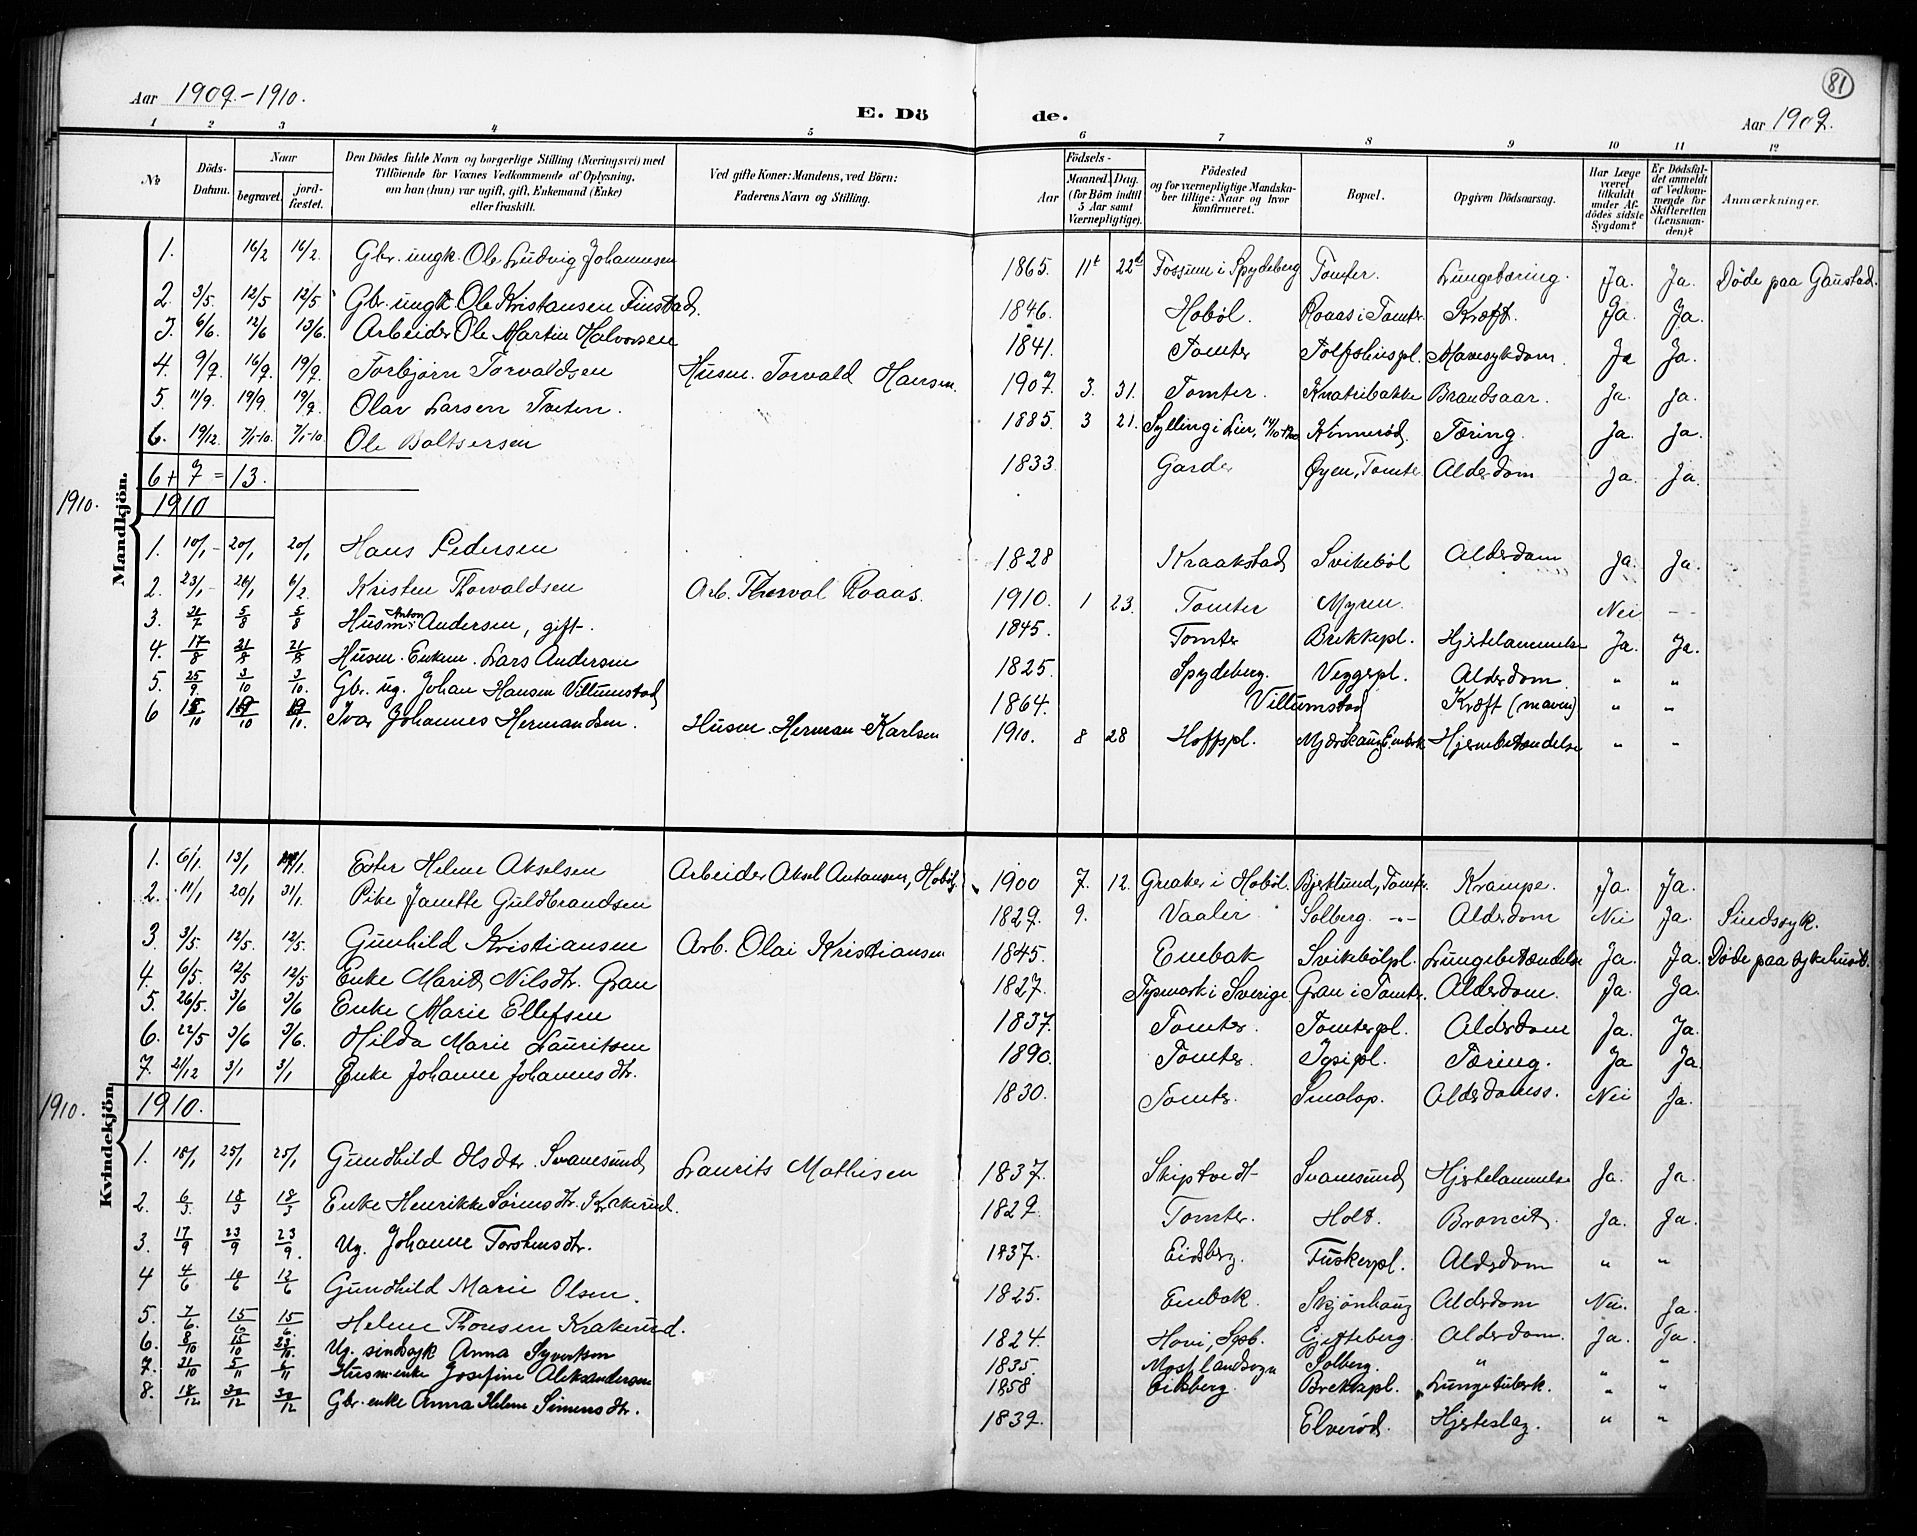 Aar 1909.-1910.
E. Dö de.
81
Aar 1909.
1 2 3 4 5 6 7 8 9 10 11 12
No
Döds-Datum.
Naar
begravet.
jord-fæstet.
Den Dödes fulde Navn og borgerlige Stilling (Næringsvei) med Tilföiende for Voxnes Vedkommende af Oplysning, om han (hun) var ugift, gift, Enkemand (Enke) eller fraskilt.
Ved gifte Koner: Mandens, ved Börn: Faderens Navn og Stilling.
Födsels-
Aar
Maaned. Dag.
(for Börn indtil 5 Aar samt Værnepligtige).
Födested og for værnepligtige Mandskaber tillige: Naar og hvor konfirmeret.
Bopæl.
Opgiven Dödsaarsag.
Har Læge været tilkaldt under Afdödes sidste Sygdom?
Er Dödsfaldet anmeldt af Vedkommende for Skifteretten (Lensmanden)?
Anmærkninger.
Mandkjön.
1. 16/2 16/2. Gbr. ungk. Ole Ludvig Johannesen 1865. 11t 22d Fossum i Spydeberg Tomter. Lungetæring. Ja. Ja. Døde paa Gaustad.
2. 3/5. 12/5 12/5 Gbr. ungk. Ole Kristansen Finstad. 1846. Hobøl. Roaas i Tomter Kræft. Ja. Ja.
3. 6/6. 12/6 13/6. Arbeider Ole Martin Halvorsen 1841. Tomter Tolfshuspl. Mavesykdom. Ja Ja.
4. 9/9. 16/9. 19/9. Torbjørn Torvaldsen Husm. Torvald Hansen. 1907. 3. 31. Tomter. Knatrebakke Brandsaar. Ja. Ja.
5. 11/9. 19/9. 19/9. Olav Larsen Tveten. 1885. 3 21. Sylling i Lier, Kinnerød. Tæring. Ja. Ja.
6. 19/12. 7/1-10. 7/1-10. Ole Baltsersen 1833. Garder Øyen, Tomter Alderdom Ja. Ja.
6 + 7 = 13.
1910.
1910
1. 10/1 - 20/1 20/1 Hans Pedersen 1828 Kraakstad Svikebøl Alderdom Ja. Ja.
2. 23/1 - 26/1 6/2. Kristen Thorvaldsen Arb. Thorval Roaas. 1910. 1 23. Tomter Myren. Nei - -
3. 21/7 5/8 5/8 Husm. Anton Andersen, gift. 1845. Tomter Brekkepl. Hjertelammelse Ja. Ja.
4. 17/8 21/8 21/8 Husm. Enkem. Lars Andersen 1825. Spydeberg. Veggerpl. Alderdom. " "
5. 25/9. 3/10 3/10. Gbr. ug. Johan Hansen Villumstad 1864. Villumstad Kræft (maven) " "
6 15/10 19/10 19/10. Ivar Johannes Hermandsen. Husm. Herman Karlsen 1910. 8 28 Hoffspl. Mjærskaug Enebak Hjernebetændelse " "
Kvindekjön
1. 6/1. 13/1 Ester Helene Akselsen Arbeider Aksel Antonsen, Hobøl. 1900 7. 12. Greaker i Hobøl. Bjerklund, Tomter. Krampe. Ja. Ja.
2. 11/1 20/1 31/1. Pike Janette Guldbrandsen 1829. 9. Vaaler Solberg. -"- Alderdom Nei Ja. Sindssyk.
3. 3/5. 12/5. 12/5. Gunhild Kristiansen Arb. Olai Kristiansen 1845. Enebak Svikebølpl. Lungebetændelse Ja. Ja. Døde paa sykehuset.
4. 6/5. 12/5 12/5 Enke Marit Nilsdtr. Gran 1827. i Sverige. Gran i Tomter. Alderdom. Ja. Ja.
5. 26/5. 3/6 3/6 Enke Marie Ellefsen 1837. Tomter. Tomterpl. Alderdom Ja. Ja.
6. 22/5 3/6 3/6. Hilda Marie Lauritsen 1890. Tomter. Igsipl. Tæring. Ja Ja.
7. 21/12 3/1 3/1 Enke Johanne Johannesdtr. 1830. Tomter. Smalap. Alderdomss. Nei Ja.
1910.
1910.
1. 18/1 25/1 25/1 Gundhild Olsdtr. Svanesund Laurits Mathisen 1837. Skiptvedt Svanesund Hjertelammelse Ja. Ja.
2. 6/3. 18/3 18/3 Enke Henrikke Sørensdtr. Krakerud. 1829. Tomter. Holt. Broncit Ja. Ja.
3. 17/9 23/9 23/9. Ug. Johanne Torstensdtr. 1837. Eidsberg. Fuskerpl. Alderdom " "
4 4/6 12/6 12/6 Gundhild Marie Olsen. 1825. Enebak. Skjønhaug Alderdom Nei. Ja.
5. 7/6. 15/6 15/6. Helene Thonsen Krakerud. 1824. Hovi, Spb. Gjetteberg. Alderdom. Ja. Ja.
6. 8/10 15/10 23/10. Ug. sindssyk Anna Syvertsen 1835. Moss landsogn Solberg. " " "
7. 31/10 5/11 6/11 Husm.enke Josefine Aleksandersen 1858 Eidsberg. Brekkepl. Lungetuberk. " "
8. 18/12 30/12 30/12 Gbr. enke Anna Helene Simensdtr. 1839. Elverød. Hjerteslag. " "